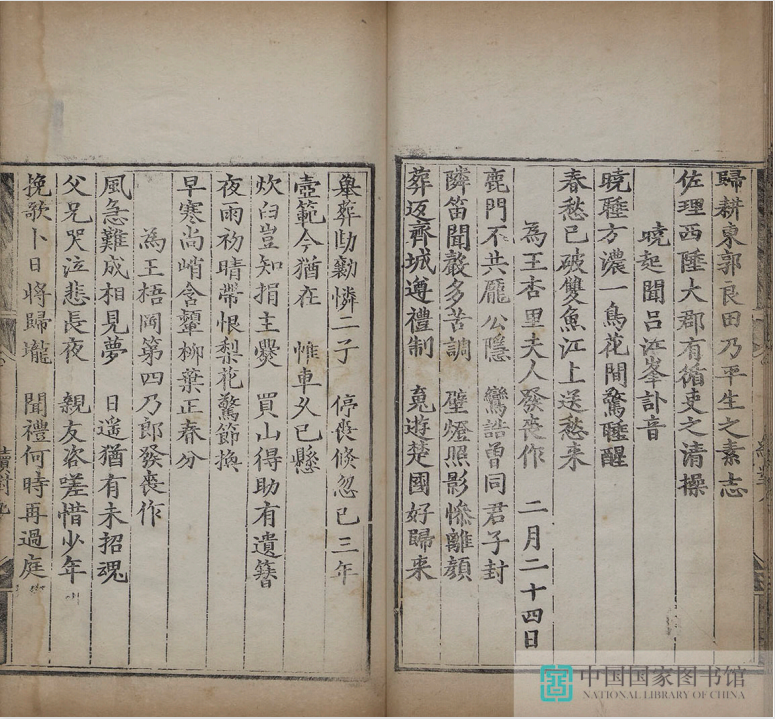 歸耕東郭良田乃平生之素志
佐理西陲大郡有循吏之清操
曉起聞呂江峯訃音
曉睡方濃一鳥花間驚睡醒
春愁已破雙魚江上送愁来
為王杏里夫人發喪作 二月二十四日
鹿門不共龐公隱 鸞誥曽同君子封
隣笛聞殸多苦調 壁燈照影慘離顔
葬返齊城遵禮制 䰟遊楚國好歸来
舉葬劻勷憐二子 停喪倐忽已三年
壼範今猶在 帷車乆已懸
炊臼豈知捐主爨 買山得助有遺簪
夜雨初晴帶恨梨花驚節換
早寒尚峭含顰柳葉正春分
為王梧岡第四乃郎發喪作
風急難成相見夢 日遥猶有未招魂
父兄哭泣悲長夜 親友咨嗟惜少年
挽歌卜日將歸壠 聞禮何時再過庭
續對
中国国家图书馆
NATIONAL LIBRARY OF CHINA